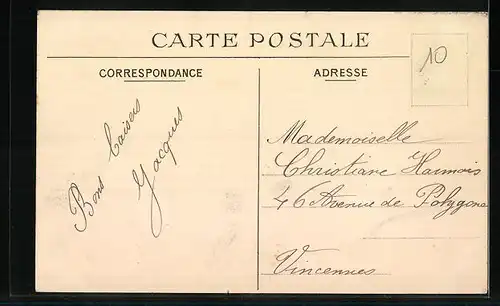 CARTE POSTALE
10
CORRESPONDANCE
ADRESSE
Bons baisers
Jacques
Mademoiselle
Christiane Haimois
46 Avenue de Polygone
Vincennes